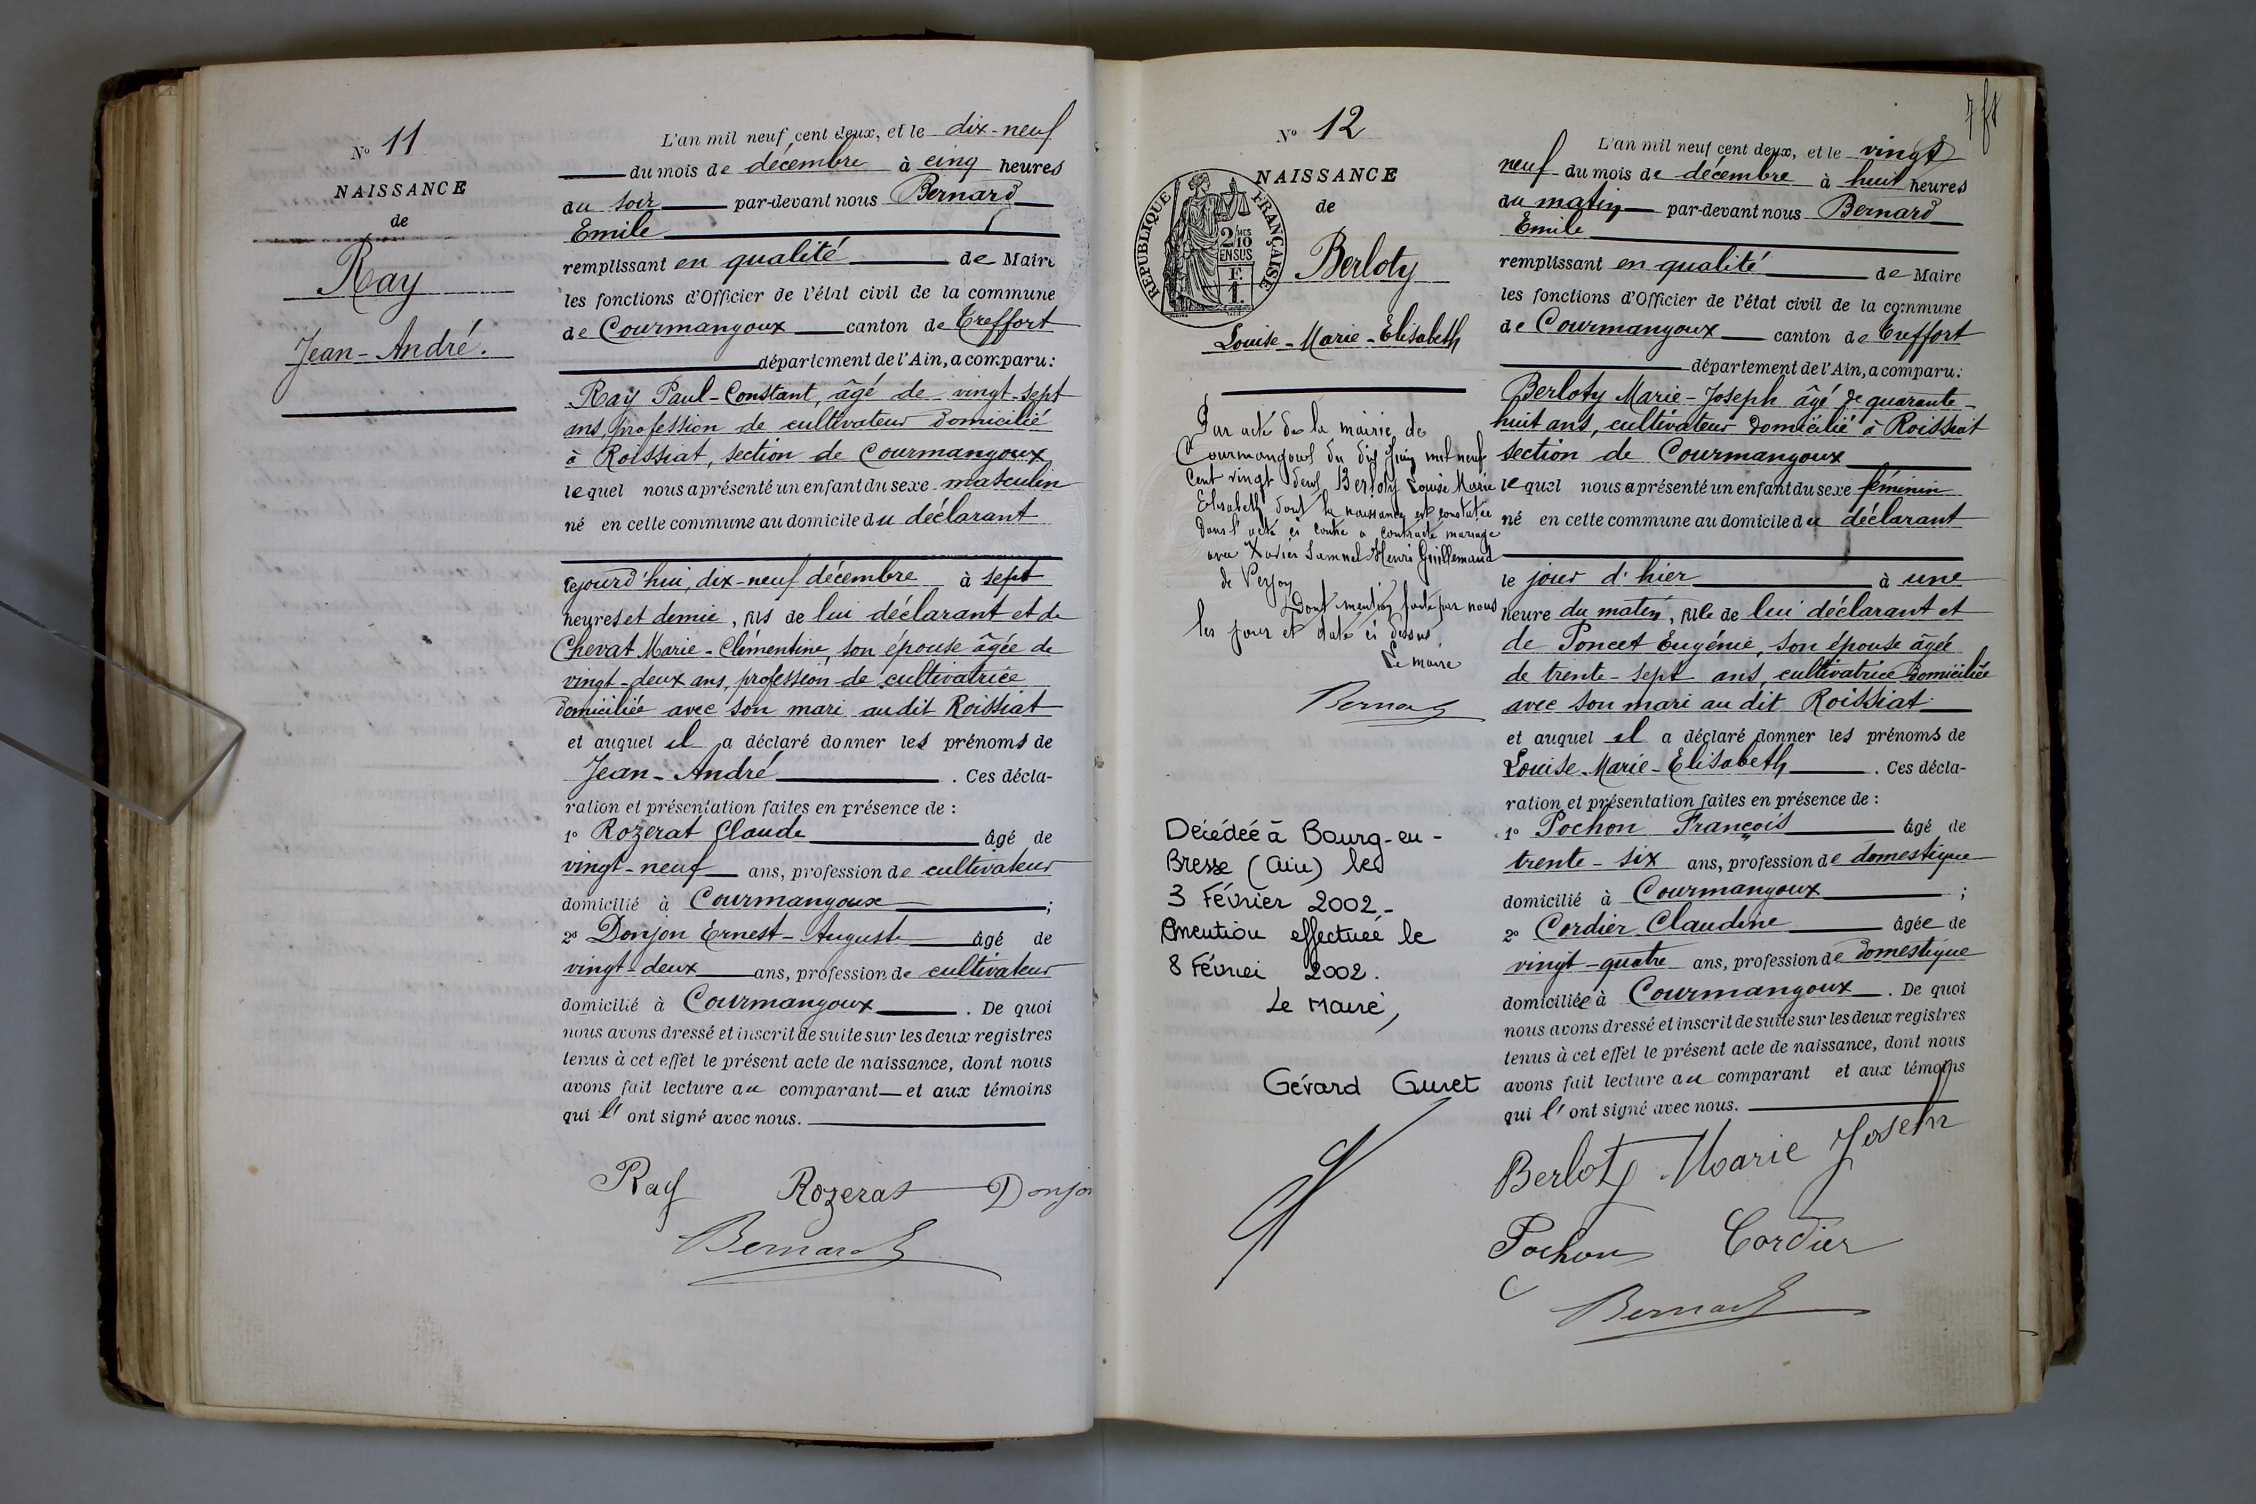 N° 11
NAISSANCE
de
Ray
Jean-André.
L'an mil neuf cent deux, et le dix-neuf
du mois de décembre à cinq heures
du soir par-devant nous Bernard
Emile
remplissant en qualité de Maire
les fonctions d'Officier de l'état civil de la commune
de Courmangoux canton de Treffort
département de l'Ain, a comparu:
Ray Paul-Constant, âgé de vingt-sept
ans, profession de cultivateur domicilié
à Roissiat, section de Courmangoux
lequel nous a présenté un enfant du sexe masculin
né en cette commune au domicile du déclarant
cejourd'hui, dix-neuf décembre à sept
heures et demie, fils de lui déclarant et de
Chevat Marie-Clémentine, son épouse âgée de
vingt-deux ans, profession de cultivatrice
domiciliée avec son mari audit Roissiat
et auquel il a déclaré donner les prénoms de
Jean-André. Ces décla-
ration et présentation faites en présence de :
1° Rozerat Claude âgé de
vingt-neuf ans, profession de cultivateur
domicilié à Courmangoux ;
2° Donjon Ernest-Auguste âgé de
vingt-deux ans, profession de cultivateur
domicilié à Courmangoux. De quoi
nous avons dressé et inscrit de suite sur les deux registres
tenus à cet effet le présent acte de naissance, dont nous
avons fait lecture au comparant et aux témoins
qui l' ont signé avec nous.
Ray Rozerat Donjon
Bernard
7 ft
N° 12
NAISSANCE
de
RÉPUBLIQUE FRANÇAISE
2/10 MES
EN SUS
F
1.
Berloty
Louise-Marie-Elisabeth
Par acte de la mairie de
Courmangoux du dix juin mil neuf
cent vingt deux Berloty Louise Marie
Elisabeth dont la naissance est constatée
dans l'acte ci contre a contracté mariage
avec Xavier Samuel Henri Guillemaud
de Verjon
Dont mention faite par nous
les jour et date ci dessus.
Le maire
Bernard
Décédée à Bourg-en-
Bresse (Ain) le
3 Février 2002 -
mention effectuée le
8 Février 2002.
Le Maire,
Gérard Guret
L'an mil neuf cent deux, et le vingt
neuf du mois de décembre à huit heures
du matin par-devant nous Bernard
Emile
remplissant en qualité de Maire
les fonctions d'Officier de l'état civil de la commune
de Courmangoux canton de Treffort
département de l'Ain, a comparu:
Berloty Marie-Joseph âgé de quarante-
huit ans, cultivateur domicilié à Roissiat
section de Courmangoux
lequel nous a présenté un enfant du sexe féminin
né en cette commune au domicile du déclarant
le jour d'hier à une
heure du matin, fille de lui déclarant et
de Poncet Eugénie, son épouse âgée
de trente-sept ans, cultivatrice domiciliée
avec son mari au dit Roissiat
et auquel il a déclaré donner les prénoms de
Louise-Marie-Elisabeth. Ces décla-
ration et présentation faites en présence de :
1° Pochon François âgé de
trente-six ans, profession de domestique
domicilié à Courmangoux ;
2° Cordier Claudine âgée de
vingt-quatre ans, profession de domestique
domiciliée à Courmangoux. De quoi
nous avons dressé et inscrit de suite sur les deux registres
tenus à cet effet le présent acte de naissance, dont nous
avons fait lecture au comparant et aux témoins
qui l' ont signé avec nous.
Berloty Marie Joseph
Pochon Cordier
Bernard